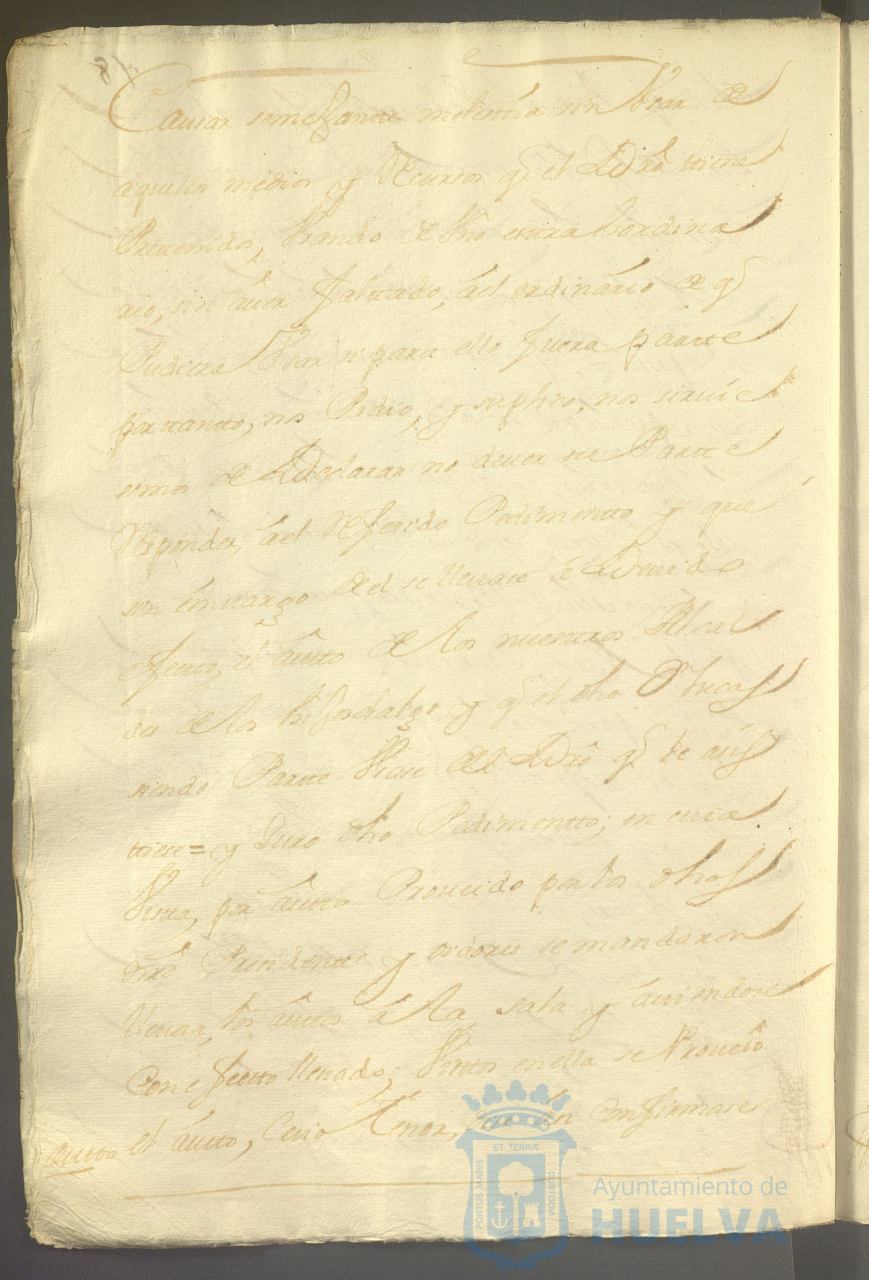 Causar semejante molestia sin Usar de
aquellos medios y Recursos q el Dro tiene
Prevenidos, Usando de Uno extrahordina
rio, sin aver faltado, ael ordinario de q
Pudiera Usar si para ello fuera parte
por tanto, nos Pidio, y suplico, nos sirvie
semos de Declarar no dever su Parte
Responder, ael Referido Pedimentto y que
sin embargo de el se llevase a Devido
efecto, el autto de los nuestros Alcal
des de los hijosdalgo y q el dho Dn Lucas
siendo Parte Usase del Dro q le asis
tiese = y Juro dho Pedimentto; en cuia
Vista, por autto Proveido por los dhos
nro Presidente y oidores se mandaron
llevar, los auttos a la sala y aviendose
Con efectto llevado; Vistos en ella se Proveio
autto el autto, Cuio Tenor, con
PORTUS MARIS
ET TERRÆ
CUSTODIA
Ayuntamiento de
HUELVA